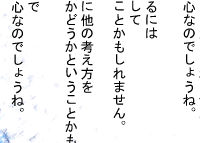 心なのでしょうね。
るには
して
ことかもしれません。
に他の考え方を
かどうかということかも
で
心なのでしょうね。